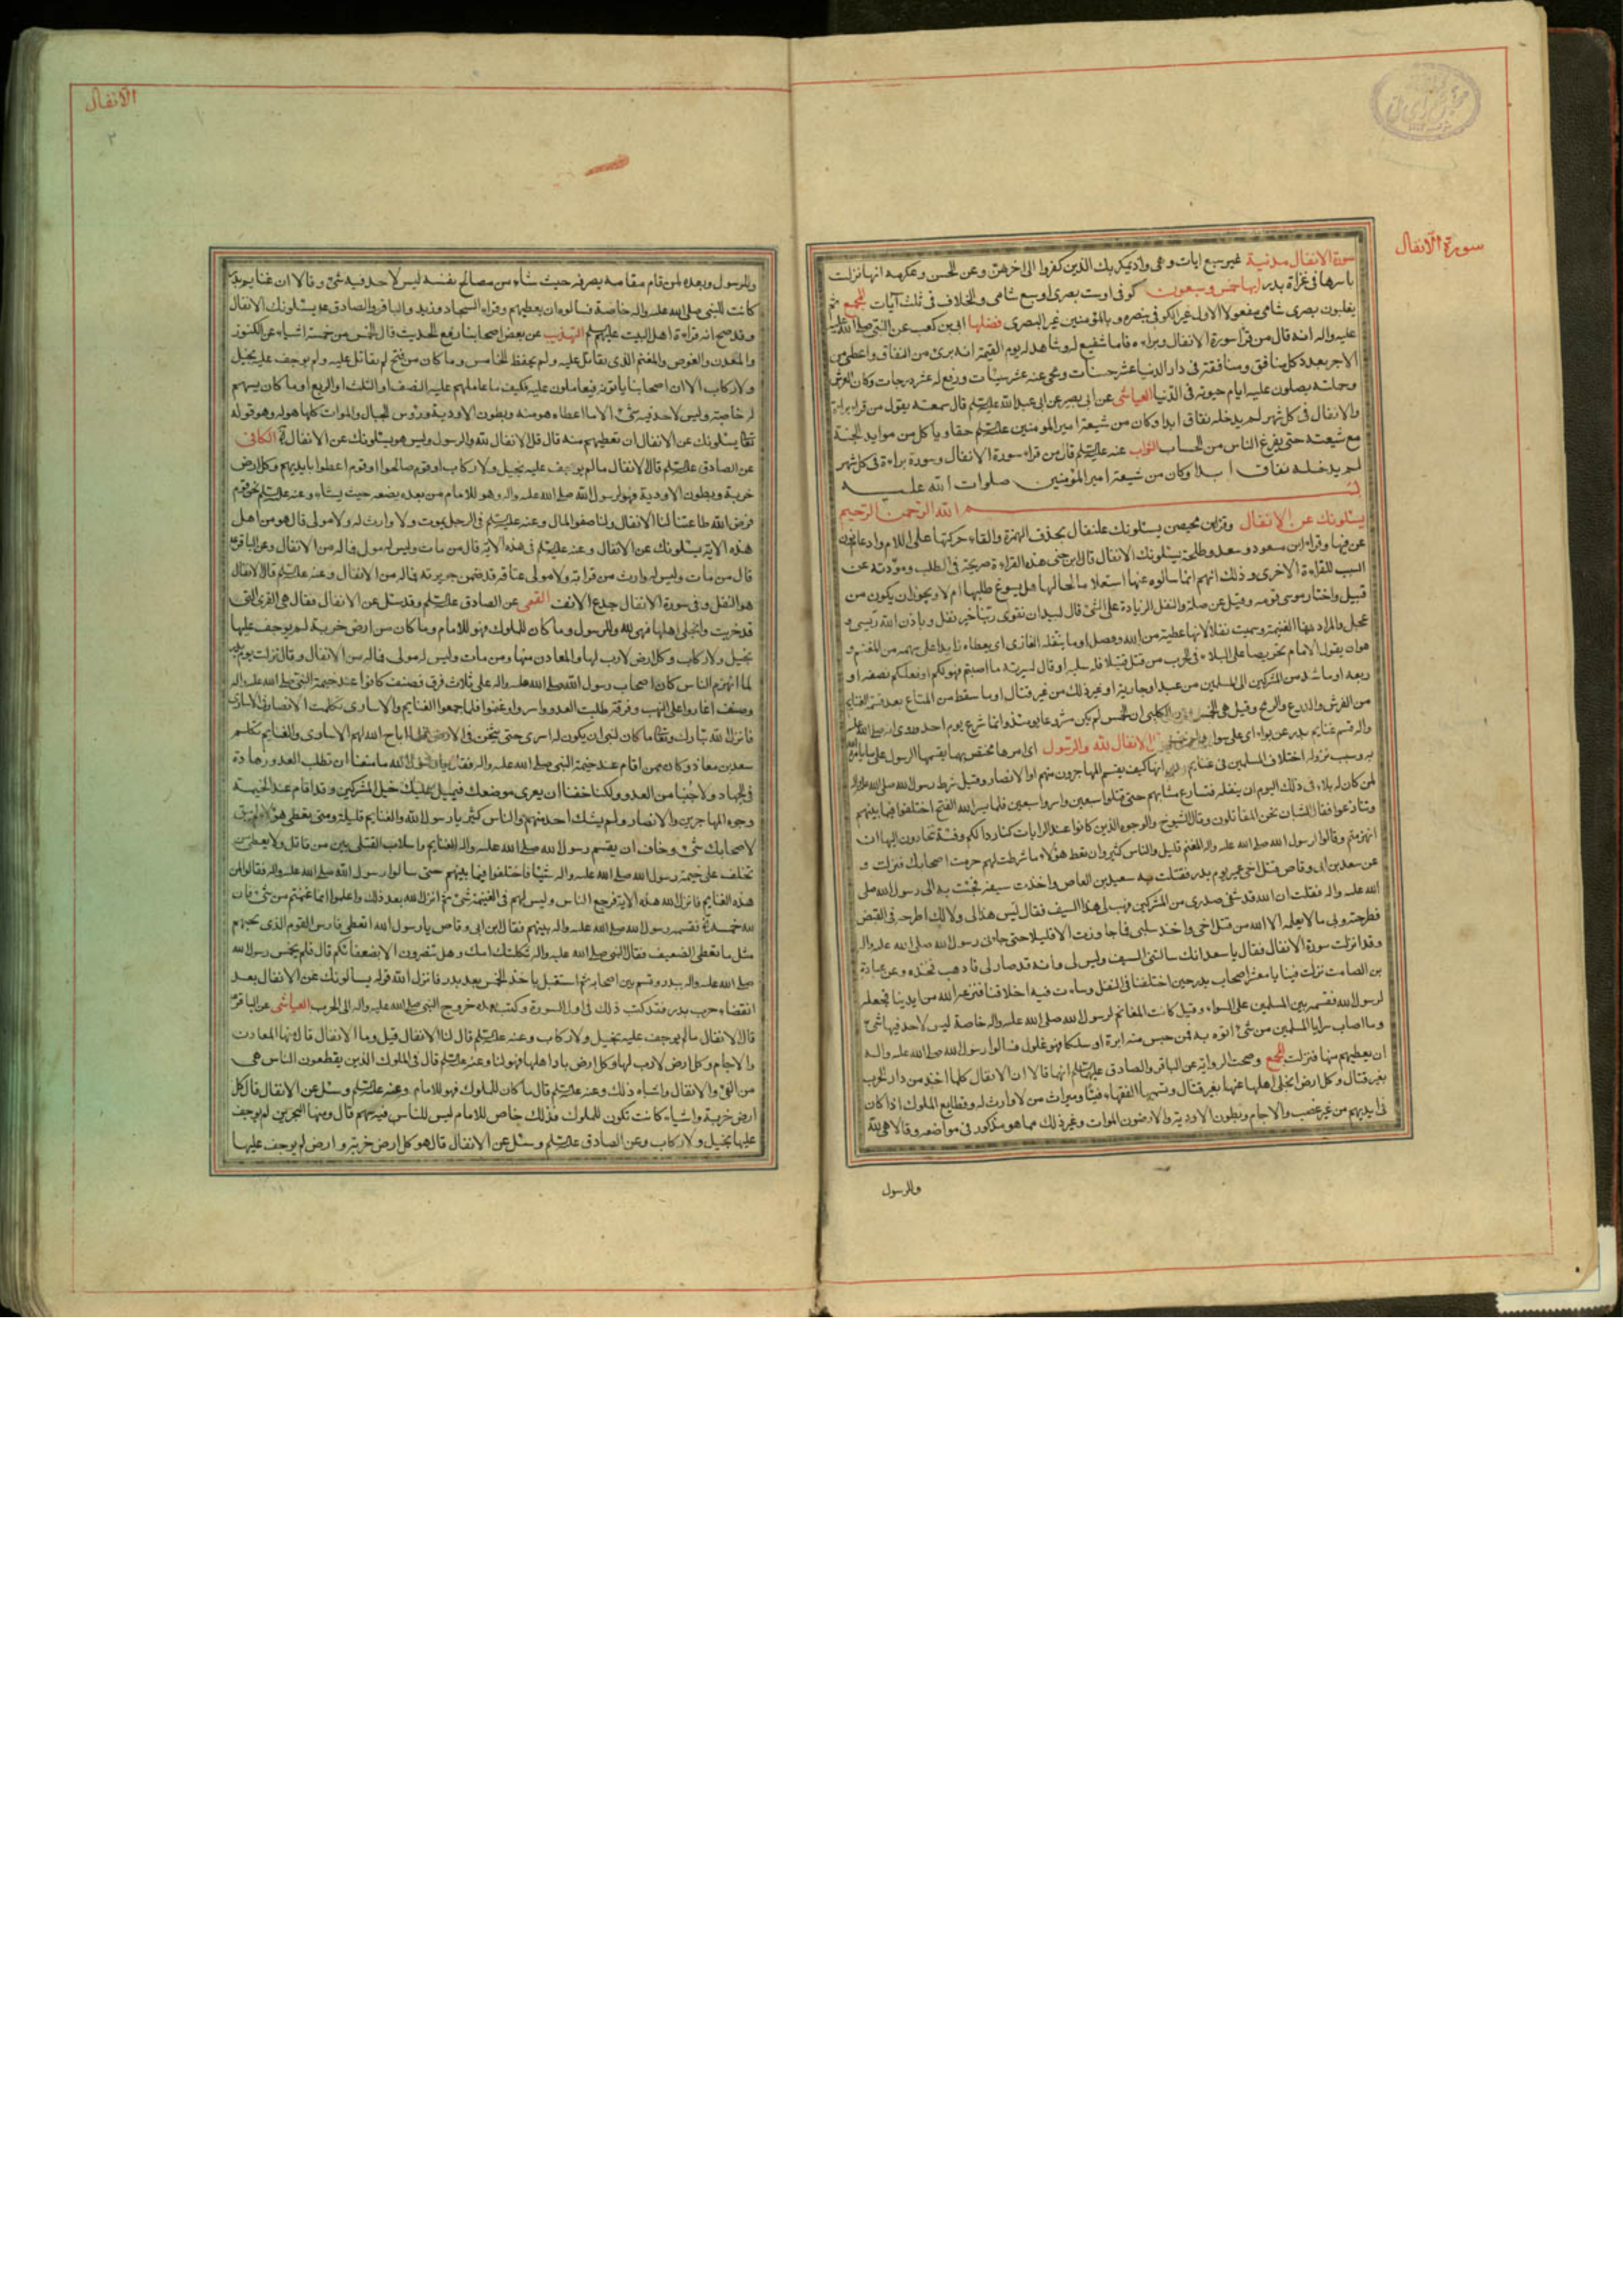 سورة الأنفال
سورة الانفال مدنية غير سبع ايات وهى واذ يمكر بك الذين كفروا الى اخرهن وعن الحسن وعكرمه انها نزلت
باسرها فى غزاة بدر ايها خمس وسبعون كوفى وست بصرى وسبع شامى والخلاف فى ثلث آيات المجمع ثم
يغلبون بصرى شامى مفعولا الاول غير الكوفى بنصره وبالمؤمنين غير البصرى فضلها ابى بن كعب عن النبى صلى الله عليه
عليه واله انه قال من قرأ سورة الانفال وبراءة فانا شفيع له وشاهد له يوم القيمة انه برئ من النفاق واعطى من
الاجر بعدد كل منافق ومنافقة فى دار الدنيا عشر حسنات ومحى عنه عشر سيئات ورفع له عشر درجات وكان العرش
وحملته يصلون عليه ايام حيوته فى الدنيا العياشى عن ابى بصير عن ابى عبد الله عليه السلم قال سمعته يقول من قرء براءة
والانفال فى كل شهر لم يدخله نفاق ابدا وكان من شيعة امير المؤمنين عليه السلم حقا وياكل من موايد الجنة
مع شيعته حتى يفرغ الناس من الحساب الثواب عنه عليه السلم قال من قراء سورة الانفال وسورة براءة فى كل شهر
لم يدخله نفاق ابدا وكان من شيعة امير المؤمنين صلوات الله عليه
بسم الله الرحمن الرحيم
يسئلونك عن الانفال وقرء ابن محيصن يسئلونك علنفال بحذف الهمزة والقاء حركتها على اللام وادغام نون
عن فيها وقراء ابن مسعود وسعد وطلحة يسئلونك الانفال قال ابن جنى هذه القراءة صريحة فى الطلب ومؤدته عن
السبب للقراءة الاخرى وذلك انهم انما سالوه عنها استعلاما لحالها هل يسوغ طلبها ام لا ويجوز ان يكون من
قبيل واختار موسى قومه وقيل عن صلة والنفل الزيادة على الشئ قال لبيد ان تقوى ربنا خير نفل وباذن الله ريثى و
عجل والمراد هنا الغنيمة وسميت نفلا لانها عطية من الله وفضل او ما ينفله الغازى اى يعطاه زايدا على سهمه من المغنم و
هو ان يقول الامام تحريضا على البلاء فى الحرب من قتل قتيلا فله سلبه او قال لسرية ما اصبتم فهو لكم او فلكم نصفه او
ربعه او ما شذ من المشركين الى المسلمين من عبد او جارية او غير ذلك من غير قتال او ما سقط من المتاع بعد قسمة الغنايم
من الفرش والدرع والرمح وقيل هى الخمس الكلبى ان الخمس لم يكن مشروعا يومئذ وانما شرع يوم احد وروى انه صلى الله عليه
واله قسم غنايم بدر عن بواء اى على سواء الانفال لله والرسول اى امرها مختص بهما يقسمها الرسول على ما يامره الله
به وسبب نزوله اختلاف المسلمين فى غنايم بدر انها كيف يقسم المهاجرون منهم او الانصار وقيل شرط رسول الله صلى الله عليه واله
لمن كان له بلاء فى ذلك اليوم ان ينفله فتسارع شبابهم حتى قتلوا سبعين واسروا سبعين فلما يسر الله الفتح اختلفوا فيما بينهم
وتنازعوا فقال الشبان نحن المقاتلون وقال الشيوخ والوجوه الذين كانوا عند الرايات كنا ردءا لكم وفئة تنحازون اليها ان
انهزمتم وقالوا لرسول الله صلى الله عليه واله المغنم قليل والناس كثير وان تعط هؤلاء ما شرطت لهم حرمت اصحابك فنزلت و
عن سعد بن ابى وقاص قتل اخى عمير يوم بدر فقتلت به سعيد بن العاص واخذت سيفه فجئت به الى رسول الله صلى
الله عليه واله فقلت ان الله قد شفى صدرى من المشركين فهب لى هذا السيف فقال ليس هذا لى ولا لك اطرحه فى القبض
فطرحته وبى ما لا يعلمه الا الله من قتل اخى واخذ سلبى فما جاوزت الا قليلا حتى جاءنى رسول الله صلى الله عليه واله
وقد انزلت سورة الانفال فقال يا سعد انك سالتنى السيف وليس لى وانه قد صار لى فاذهب فخذه وعن عبادة
بن الصامت نزلت فينا يا معشر اصحاب بدر حين اختلفنا فى النفل وساءت فيه اخلاقنا فنزعه الله من ايدينا فجعله
لرسول الله فقسمه بين المسلمين على السواء وقيل كانت المغانم لرسول الله صلى الله عليه واله خاصة ليس لاحد فيها شئ
وما اصاب سرايا المسلمين من شئ اتوه به فمن حبس منه ابرة او سلكا فهو غلول فسالوا رسول الله صلى الله عليه واله
ان يعطيهم منها فنزلت المجمع وصحت الرواية عن الباقر والصادق عليهما السلم انهما قالا ان الانفال كلما اخذ من دار الحرب
بغير قتال وكل ارض انجلى اهلها عنها بغير قتال وتسميها الفقهاء فيئا وميراث من لا وارث له وقطايع الملوك اذا كان
فى ايديهم من غير غصب والاجام وبطون الاودية والارضون الموات وغير ذلك مما هو مذكور فى مواضعه وقالا هى لله
وللرسول
الأنفال
٢
وللرسول وبعده لمن قام مقامه يصرفه حيث شاء من مصالح نفسه ليس لاحد فيه شئ وقالا ان غنايم بدر
كانت للنبى صلى الله عليه واله خاصة فسالوه ان يعطيهم وقراء السجاد وزيد والباقر والصادق ع يسئلونك الانفال
وقد صح انه قراءة اهل البيت عليهم السلم التهذيب عن بعض اصحابنا رفع الحديث قال الخمس من خمسة اشياء عن الكنوز
والمعدن والغوص والمغنم الذى يقاتل عليه ولم يحفظ الخامس وما كان من فتح لم يقاتل عليه ولم يوجف عليه بخيل
ولا ركاب الا ان اصحابنا ياتونه فيعاملون عليه فكيف ما عاملهم عليه النصف او الثلث او الربع او ما كان يسهم
له خاصة وليس لاحد فيه شئ الا ما اعطاه هو منه وبطون الاودية ورؤس الجبال والموات كلها هو له وهو قوله
تعالى يسئلونك عن الانفال ان تعطيهم منه قال قل الانفال لله والرسول وليس هو يسئلونك عن الانفال الكافى
عن الصادق عليه السلم قال الانفال ما لم يوجف عليه بخيل ولا ركاب او قوم صالحوا او قوم اعطوا بايديهم وكل ارض
خربة وبطون الاودية فهو لرسول الله صلى الله عليه واله وهو للامام من بعده يضعه حيث يشاء وعنه عليه السلم نحن قوم
فرض الله طاعتنا لنا الانفال ولنا صفو المال وعنه عليه السلم فى الرجل يموت ولا وارث له ولا مولى قال هو من اهل
هذه الاية يسئلونك عن الانفال وعنه عليه السلم فى هذه الاية قال من مات وليس له مولى فماله من الانفال وعن الباقر ع
قال من مات وليس له وارث من قرابة ولا مولى عتاقه قد ضمن جريرته فماله من الانفال وعنه عليه السلم قال الانفال
هو النفل وفى سورة الانفال جدع الانف القمى عن الصادق عليه السلم وقد سئل عن الانفال فقال هى القرى التى
قد خربت وانجلى اهلها فهو لله وللرسول وما كان للملوك فهو للامام وما كان من ارض خربة لم يوجف عليها
بخيل ولا ركاب وكل ارض لا رب لها والمعادن منها ومن مات وليس له مولى فماله من الانفال وقال نزلت يوم بدر
لما انهزم الناس كان اصحاب رسول الله صلى الله عليه واله على ثلاث فرق فصنف كانوا عند خيمة النبى صلى الله عليه واله
وصنف اغاروا على النهب وفرقة طلبت العدو واسروا وغنموا فلما جمعوا الغنايم والاسارى تكلمت الانصار فى الاسارى
فانزل الله تبارك وتعالى ما كان لنبى ان يكون له اسرى حتى يثخن فى الارض فلما اباح الله لهم الاسارى والغنايم تكلم
سعد بن معاذ وكان ممن اقام عند خيمة النبى صلى الله عليه واله فقال يا رسول الله ما منعنا ان نطلب العدو زهادة
فى الجهاد ولا جبنا من العدو ولكنا خفنا ان يعرى موضعك فيميل عليك خيل المشركين وقد اقام عند الخيمة
وجوه المهاجرين والانصار ولم يشك احد منهم والناس كثير يا رسول الله والغنايم قليلة ومتى يعطى هؤلاء لم يبق
لاصحابك شئ وخاف ان يقسم رسول الله صلى الله عليه واله الغنايم واسلاب القتلى بين من قاتل ولا يعطى من
تخلف على خيمة رسول الله صلى الله عليه واله شيئا فاختلفوا فيما بينهم حتى سالوا رسول الله صلى الله عليه واله فقالوا لمن
هذه الغنايم فانزل الله هذه الاية فرجع الناس وليس لهم فى الغنيمة شئ ثم انزل الله بعد ذلك واعلموا انما غنمتم من شئ فان
لله خمسه فقسمه رسول الله صلى الله عليه واله بينهم فقال ابن ابى وقاص يا رسول الله اتعطى فارس القوم الذى يحميهم
مثل ما تعطى الضعيف فقال النبى صلى الله عليه واله ثكلتك امك وهل تنصرون الا بضعفائكم قال فلم يخمس رسول الله
صلى الله عليه واله ببدر وقسم بين اصحابه ثم استقبل ياخذ الخمس بعد بدر فانزل الله قوله يسالونك عن الانفال بعد
انقضاء حرب بدر فقد كتب ذلك فى اول السورة وكتب بعده خروج النبى صلى الله عليه واله الى الحرب العياشى عن الباقر ع
قال الانفال ما لم يوجف عليه بخيل ولا ركاب وعنه عليه السلم قال لنا الانفال قيل وما الانفال قال منها المعادن
والاجام وكل ارض لا رب لها وكل ارض باد اهلها فهو لنا وعنه عليه السلم قال فى الملوك الذين يقطعون الناس هى
من الفئ والانفال واشباه ذلك وعنه عليه السلم قال ما كان للملوك فهو للامام وعنه عليه السلم وسئل عن الانفال قال كل
ارض خربة واشياء كانت تكون للملوك فذلك خاص للامام ليس للناس فيه سهم قال ومنها البحرين لم يوجف
عليها بخيل ولا ركاب وعن الصادق عليه السلم وسئل عن الانفال قال هو كل ارض خربة وارض لم يوجف عليها